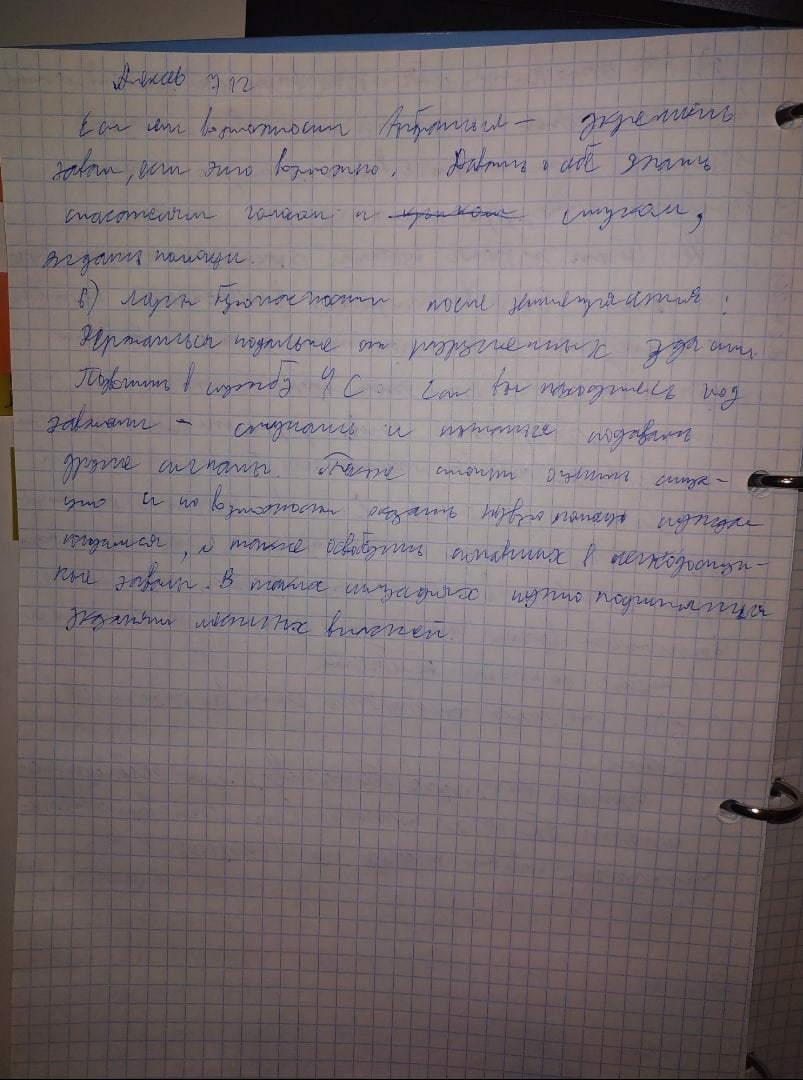 Если нет возможности выбраться — укрепить
завал, если это возможно. Давать о себе знать
спасателям голосом и стуком,
ждать помощи.
в) меры безопасности после землетрясения:
Держаться подальше от разрушенных зданий.
Позвонить в службу ЧС. Если вы находитесь под
завалами - стучать и пытаться подавать
другие сигналы. Также стоит оценить ситуа-
цию и по возможности оказать первую помощь нужда-
ющимся, а также освободить попавших в легкодоступ-
ные завалы. В таких ситуациях нужно подчиняться
указаниям местных властей.